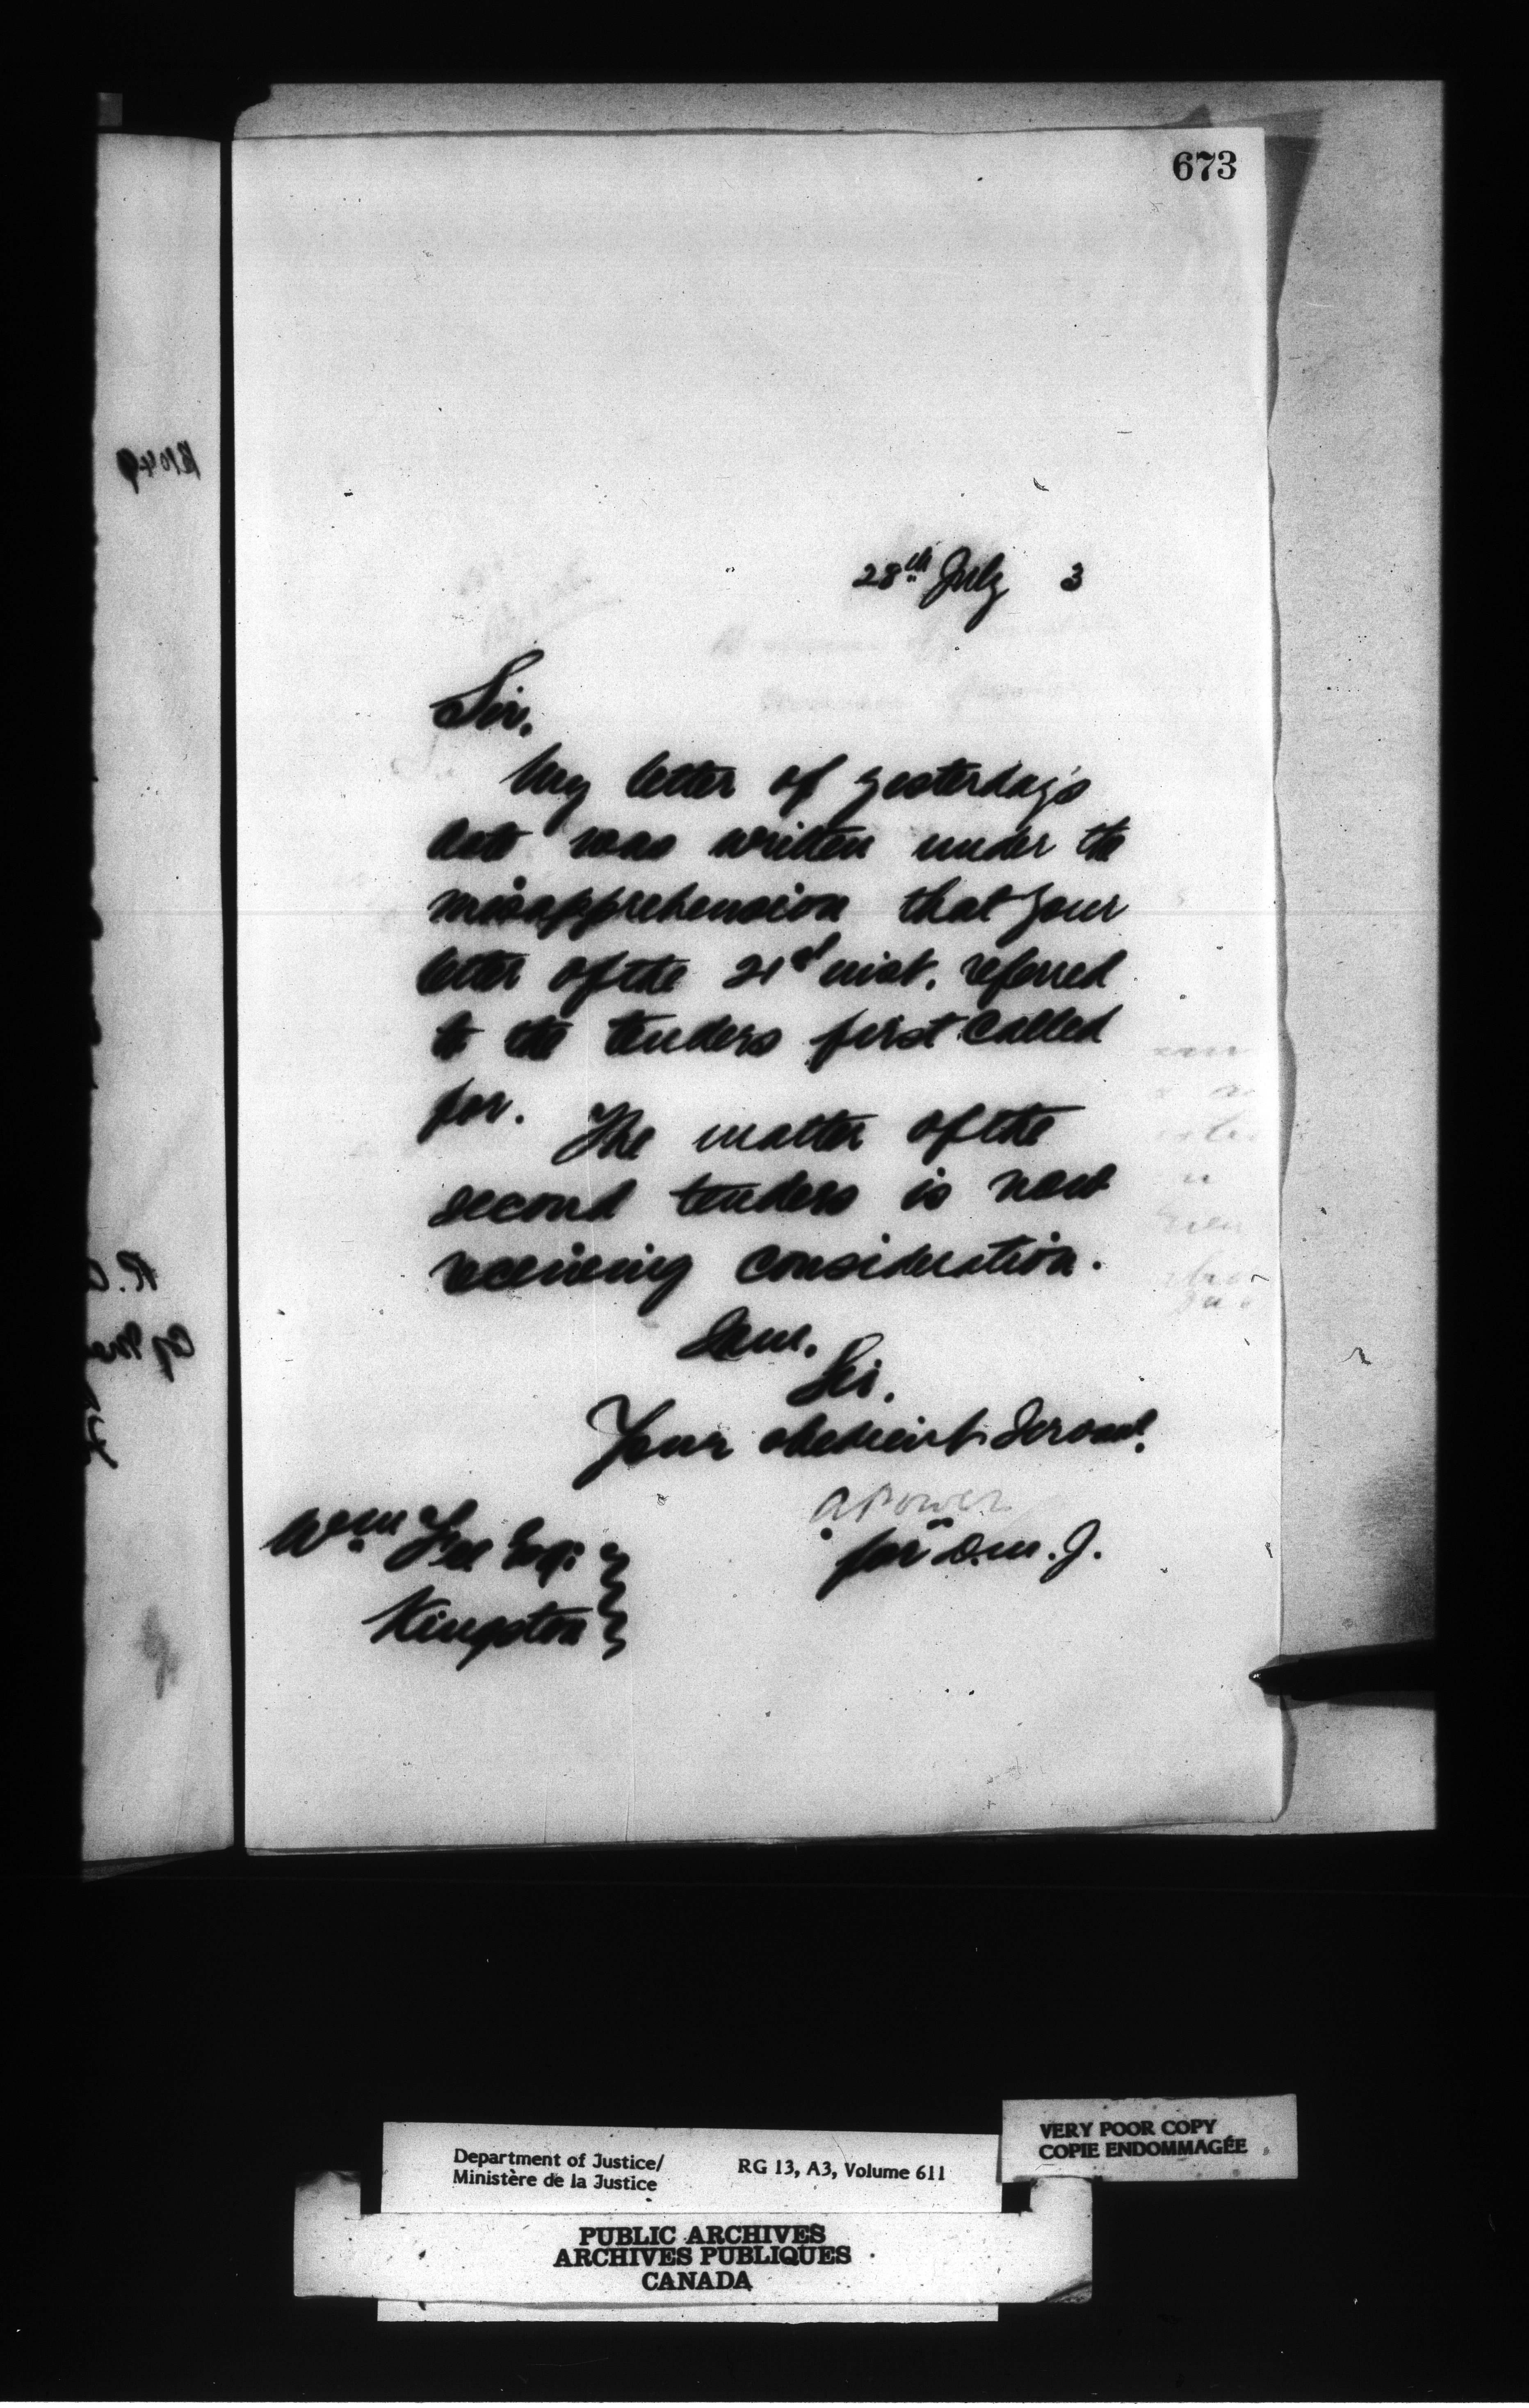 673
28th July 3
Sir,
My letter of yesterday's
date was written under the
misapprehension that your
letter of the 21st inst. referred
to the tenders first called
for. The matter of the
second tenders is now
receiving consideration.
I am,
Sir,
Your obedient Servant.
A Power
for D.M.J.
Wm Lee Esq:
Kingston
VERY POOR COPY
COPIE ENDOMMAGÉE
Department of Justice/
Ministère de la Justice
RG 13, A3, Volume 611
PUBLIC ARCHIVES
ARCHIVES PUBLIQUES
CANADA